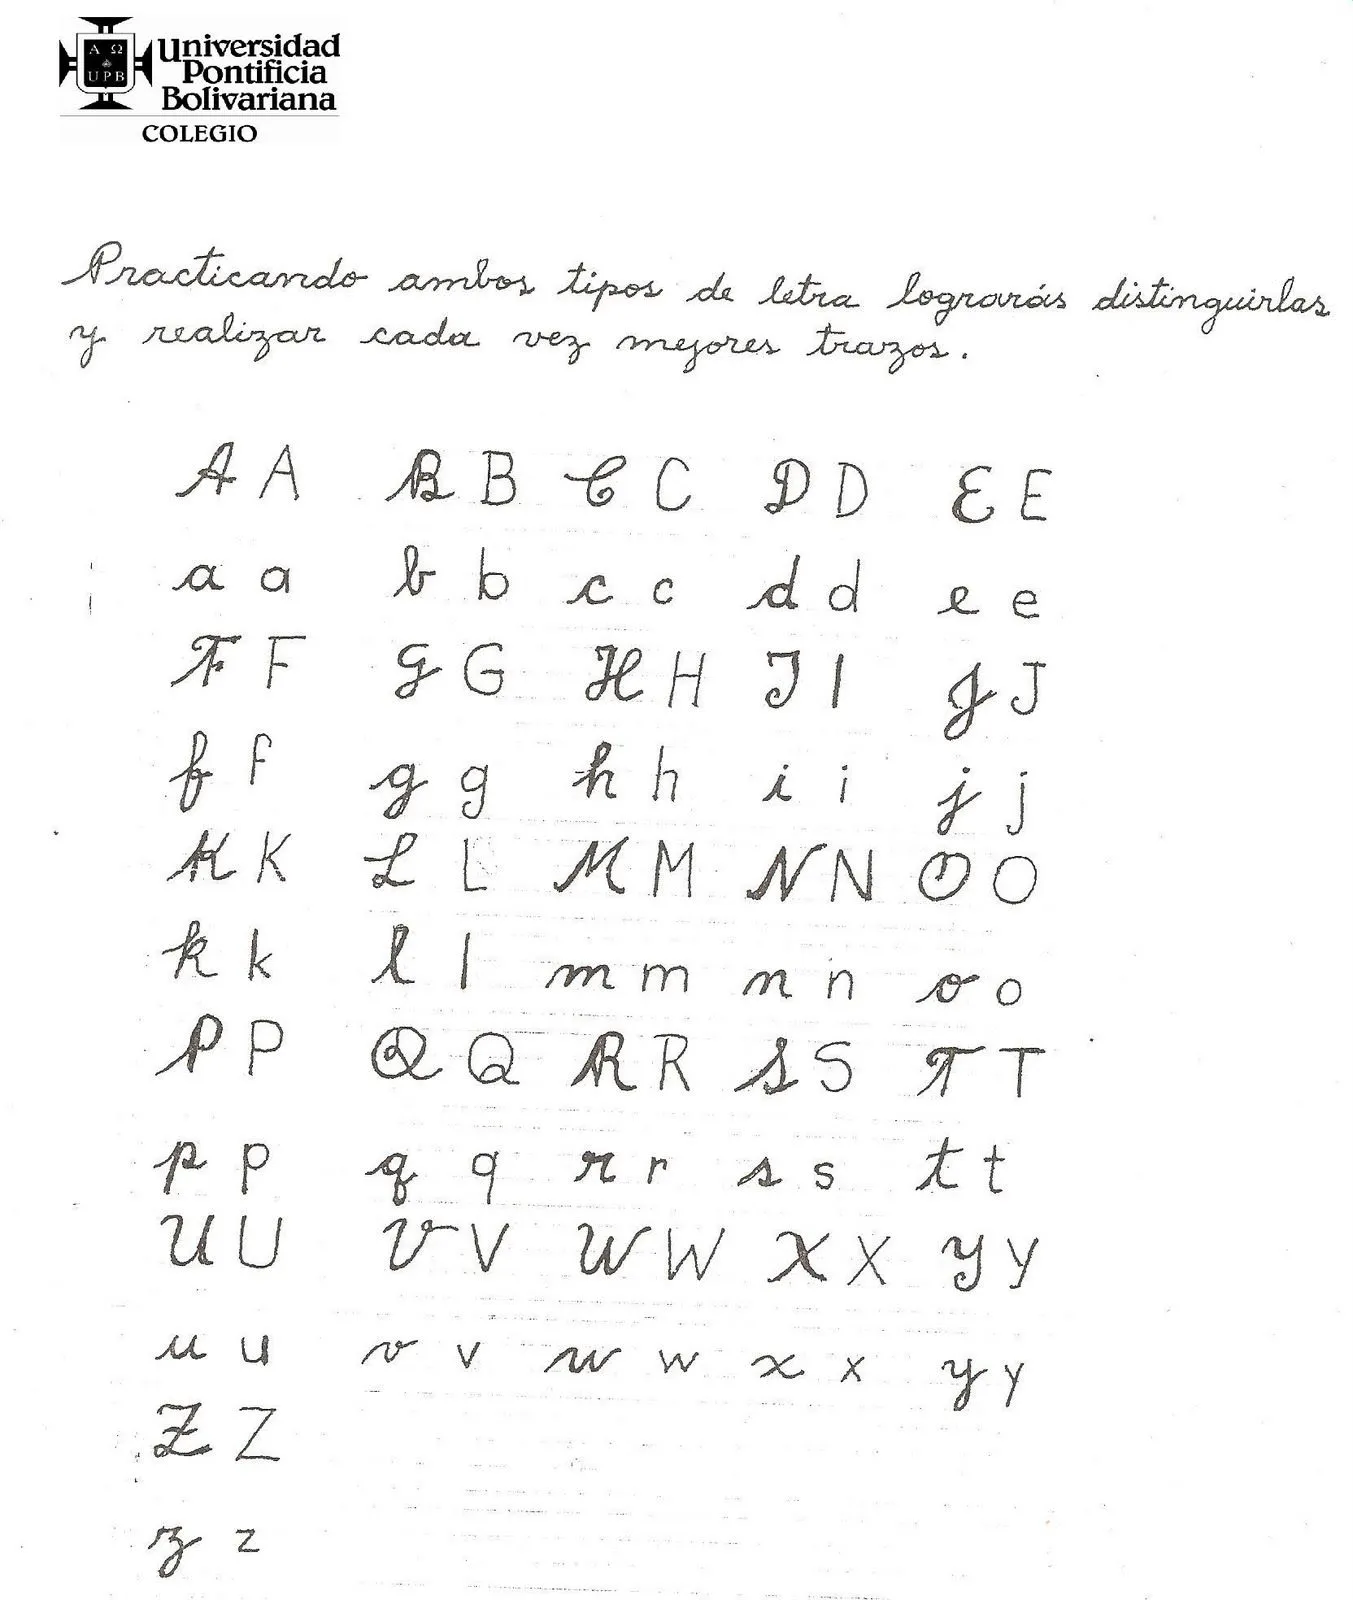 Α Ω
UPB
Universidad
Pontificia
Bolivariana
COLEGIO
Practicando ambos tipos de letra lograrás distinguirlas
y realizar cada vez mejores trazos.
A A B B C C D D E E
a a b b c c d d e e
F F G G H H I I J J
f f g g h h i i j j
K K L L M M N N O O
k k l l m m n n o o
P P Q Q R R S S T T
p p q q r r s s t t
U U V V W W X X Y Y
u u v v w w x x y y
Z Z
z z